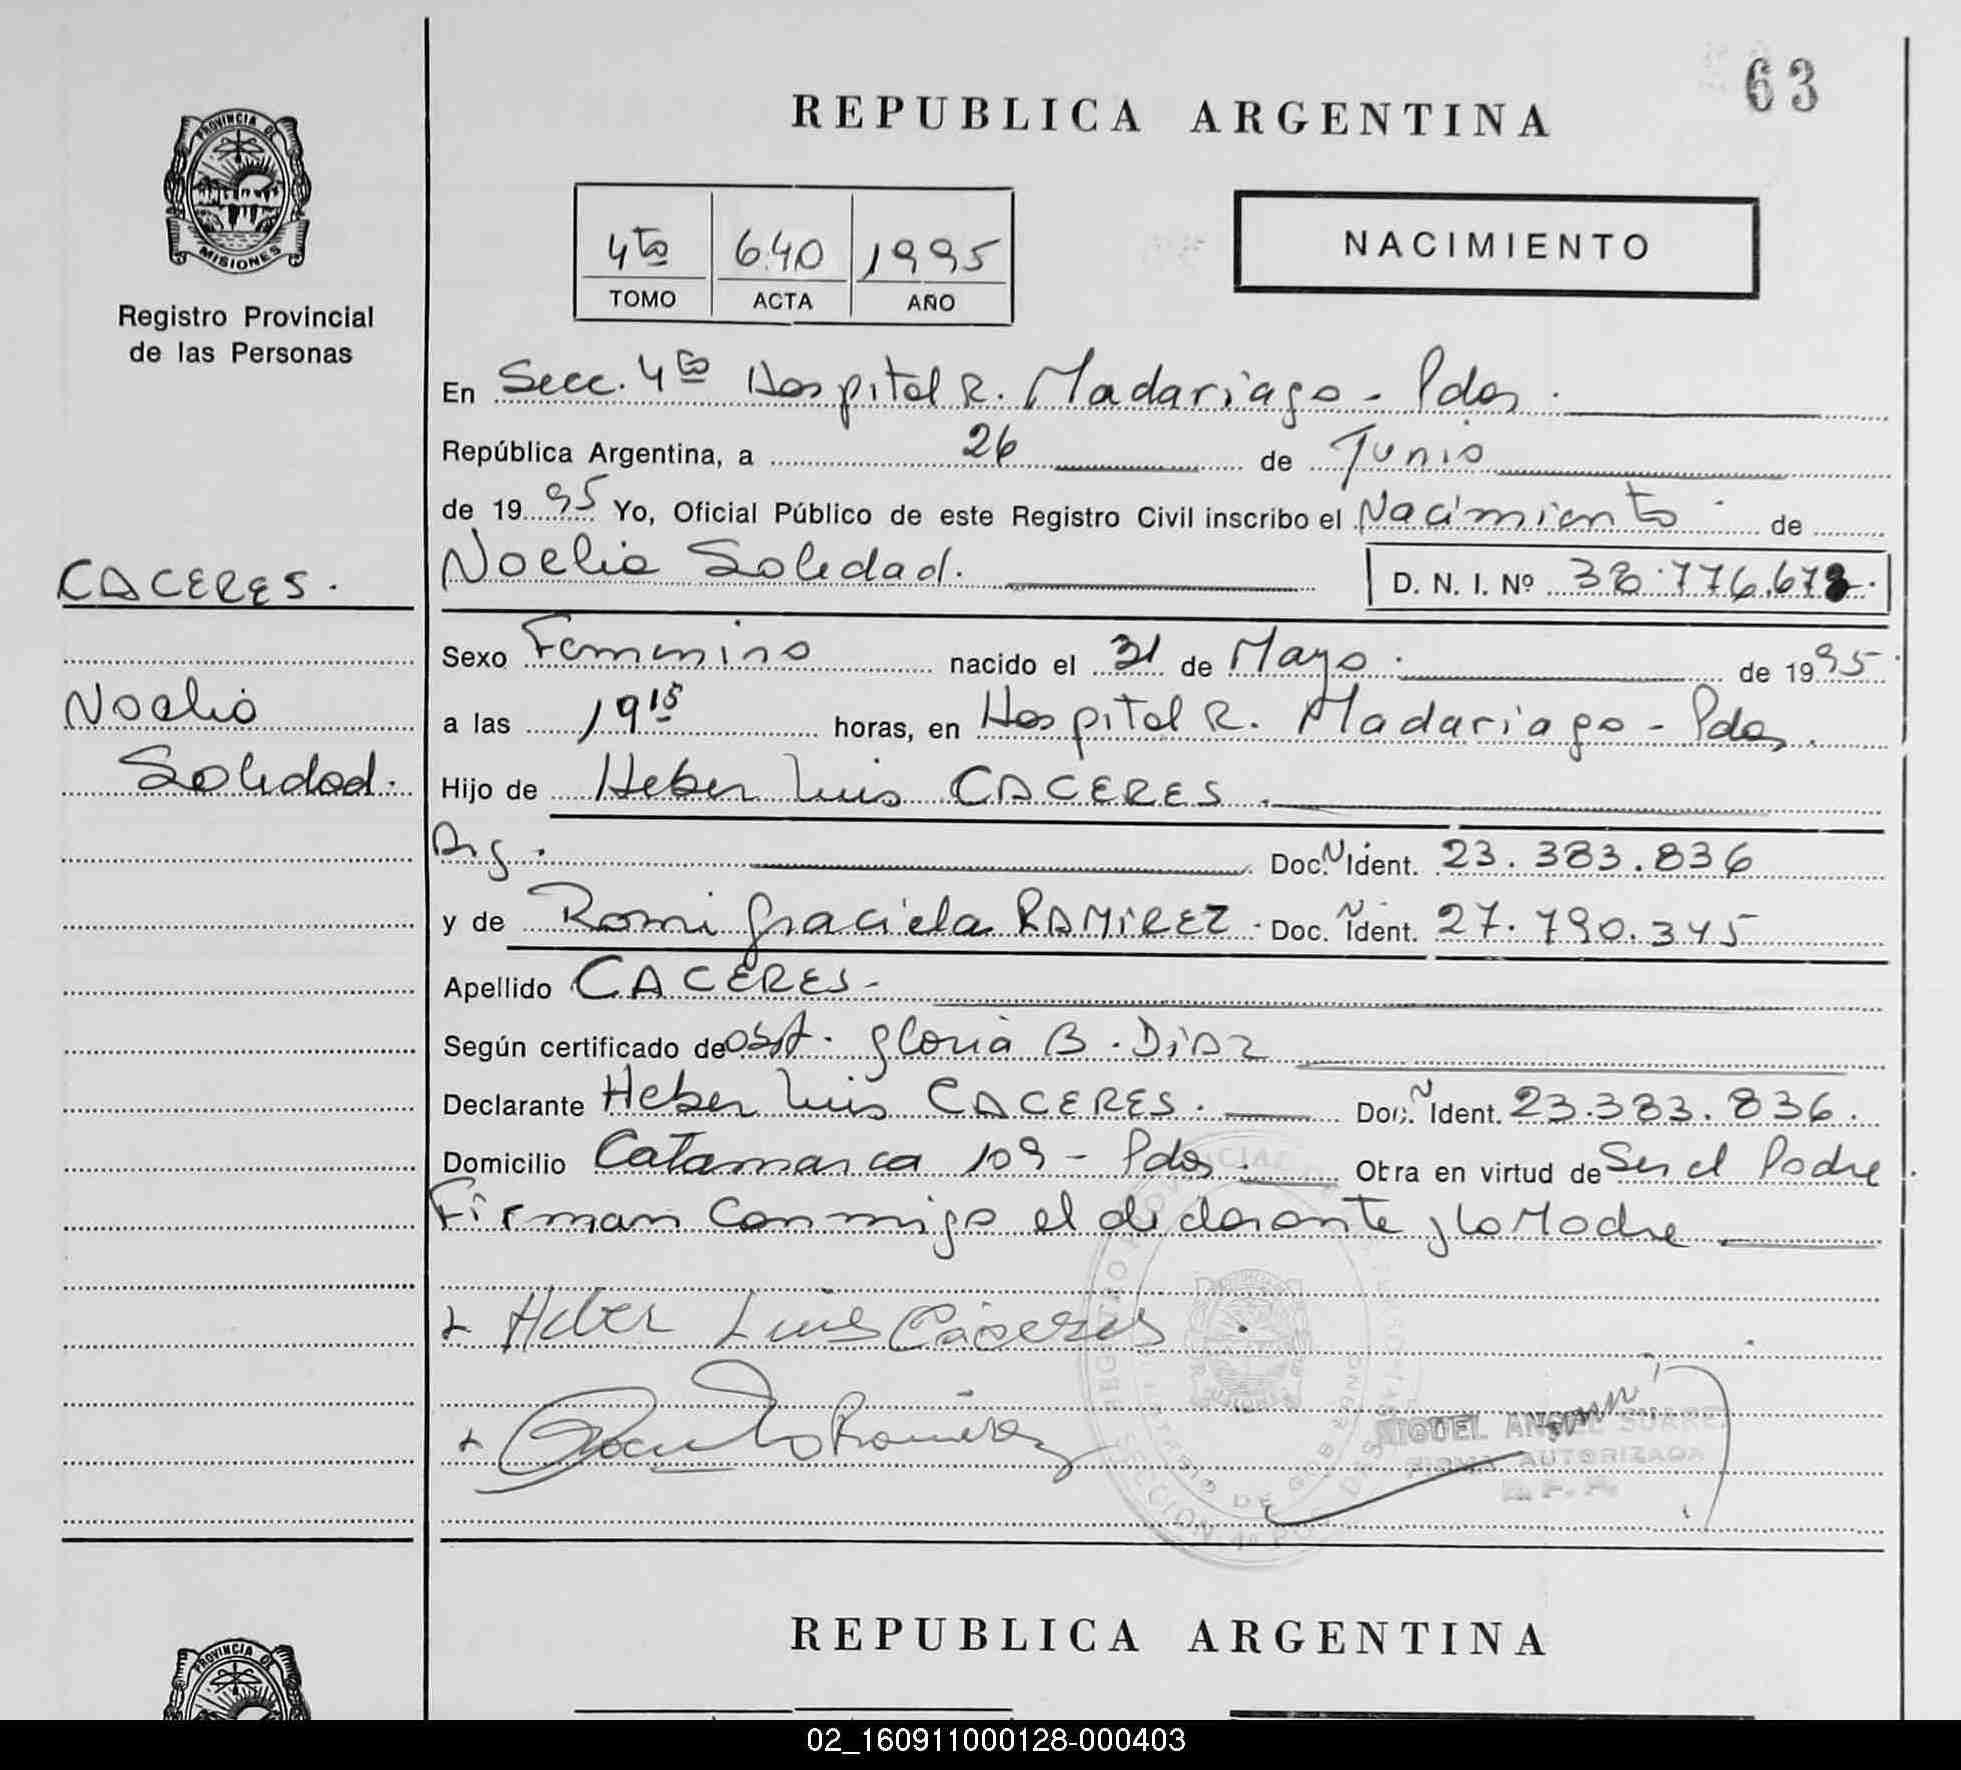 63
REPUBLICA ARGENTINA
PROVINCIA DE
MISIONES
Registro Provincial
de las Personas
4to 640 1995
TOMO ACTA AÑO
NACIMIENTO
En Secc. 4ta Hospital R. Madariaga - Pdas.
República Argentina, a 26 de Junio
de 1995 Yo, Oficial Público de este Registro Civil inscribo el Nacimiento de
CACERES.
Noelia Soledad. D. N. I. Nº
Sexo Femenino nacido el 31 de Mayo. de 1995
Noelia
a las 19 15 horas, en Hospital R. Madariaga - Pdas.
Soledad.
Hijo de Heber Luis CACERES.
Arg. Doc. Ident. 23.383.836
y de Romi Graciela RAMIREZ - Doc. Ident. 27.790.345
Apellido CACERES-
Según certificado de Obst. Gloria B. Diaz
Declarante Heber Luis CACERES. Doc. Ident. 23.383.836.
Domicilio Catamarca 109 - Pdas. Obra en virtud de Ser el Padre.
Firman conmigo el declarante y la Madre
Heber Luis Cáceres
Ramirez
MIGUEL ANGEL SUAREZ
FIRMA AUTORIZADA
R. P. P.
REPUBLICA ARGENTINA
PROVINCIA DE
02_160911000128-000403